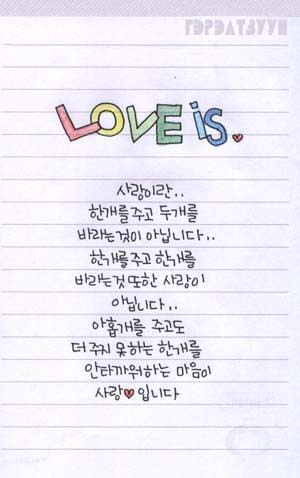 LOVE is.
사랑이란..
한개를주고 두개를
바라는것이 아닙니다..
한개를주고 한개를
바라는것또한 사랑이
아닙니다..
아홉개를 주고도
더 주지 못하는 한개를
안타까워하는 마음이
사랑♥입니다